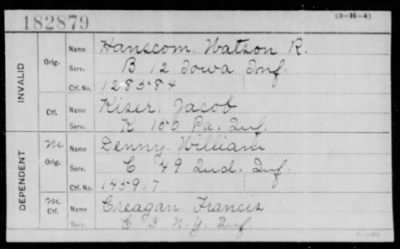 182879
(3-31-4)
INVALID
Orig.
Name Hanscom, Watson R.
Serv. B 12 Iowa Inf.
Ctf. No. 128584
Ctf.
Name Kizer, Jacob
Serv. K 155 Pa. Inf.
DEPENDENT
M
Orig.
Name Denny, William
Serv. C 49 Ind. Inf.
Ctf. No. 145917
M
Ctf.
Name Creagan, Francis
Serv. C 3 N.Y. Inf